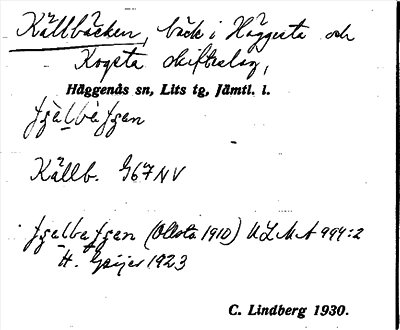 Källbäcken, bäck i Häggesta och
Kogsta skifteslag,
Häggenås sn, Lits tg, Jämtl. l.
Källb. G67NV
(Ollsta 1910) ULMA 994:2
H. Geijer 1923
C. Lindberg 1930.